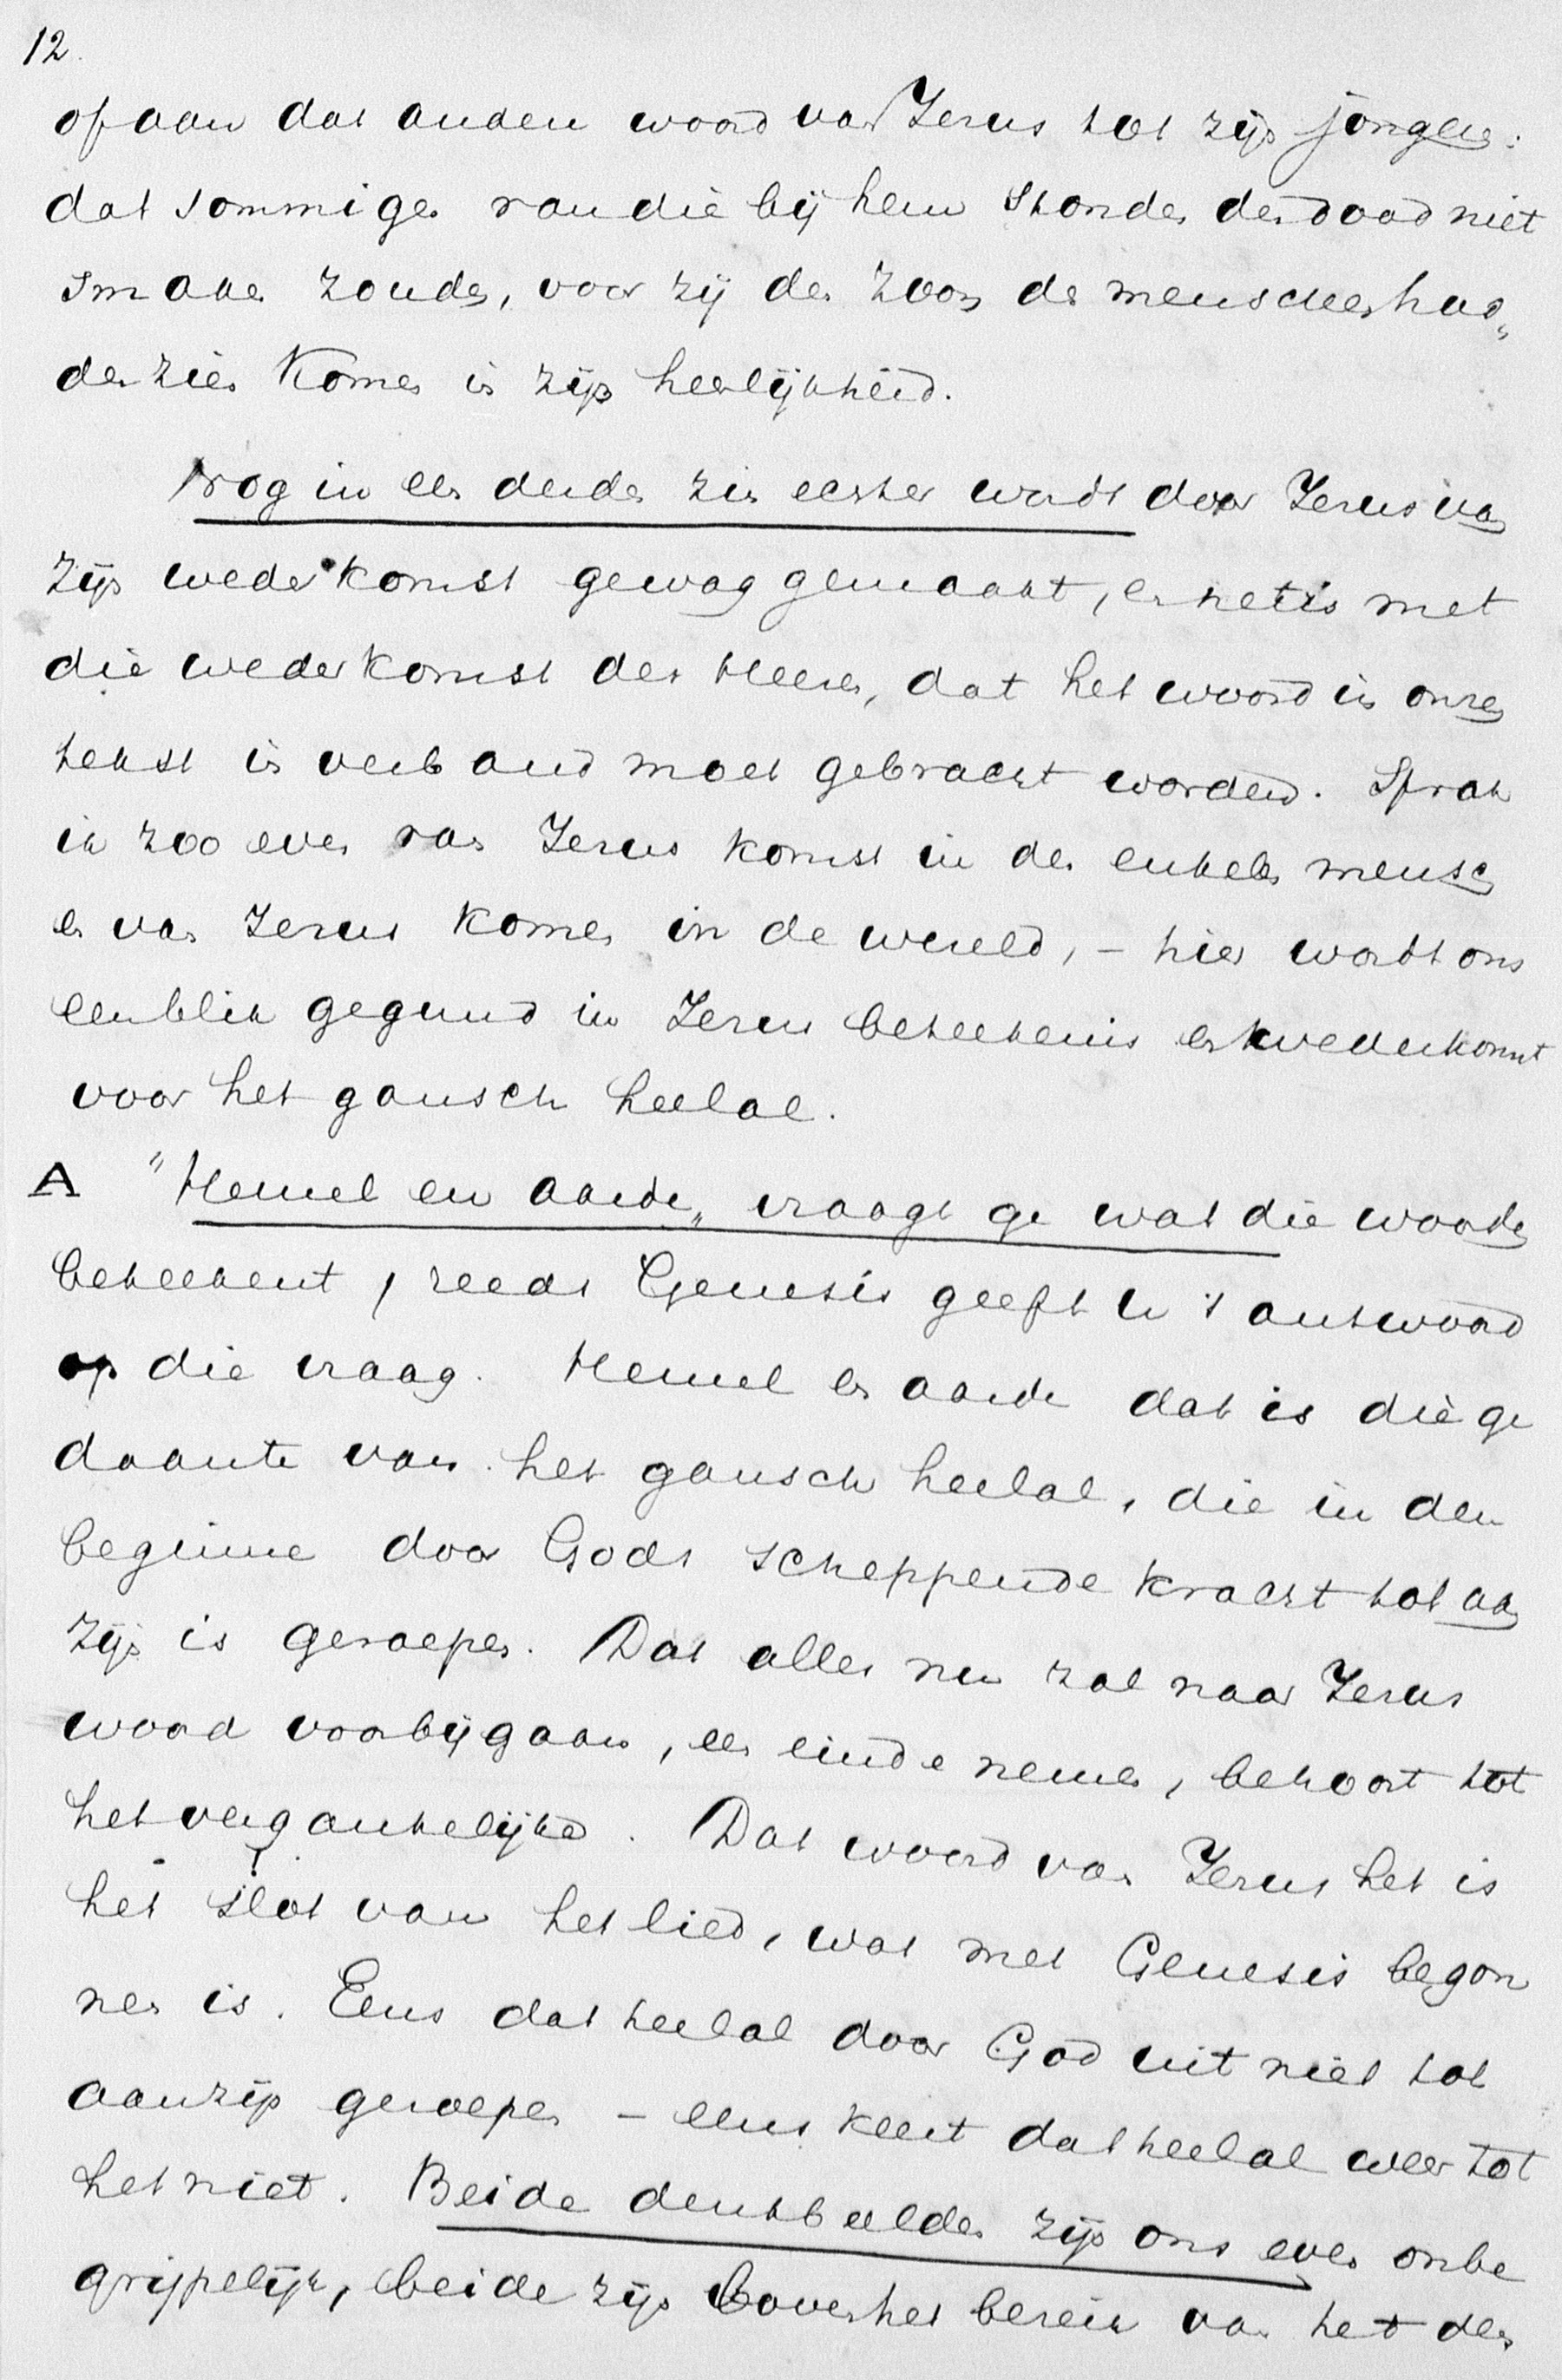 12.
of aan dat andere woord van Jezus tot zijn jongeren:
dat sommigen van die bij hem stonden den dood niet
smaken zouden, voor zij den Zoon des menschen had„
den zien komen in zijn heerlijkheid.
Nog in een derden zin echter wordt door Jezus van
zijn wederkomst gewag gemaakt, en het is met
die wederkomst des Heeren, dat het woord in onzen
tekst in verband moet gebracht worden. Sprak
ik zoo even van Jezus komst in den enkelen mensch
en van Jezus komen in de wereld, – hier wordt ons
een blik gegund in Jezus beteekenis en wederkomst
voor het gansch heelal.
A "Hemel en aarde„ vraagt ge wat die woorden
beteekent, reeds Genesis geeft u 't antwoord
op die vraag. Hemel en aarde dat is die ge
daante van het gansch heelal, die in den
beginne door Gods scheppende kracht tot aan
zijn is geroepen. Dat alles nu zal naar Jezus
woord voorbijgaan, een einde nemen, behoort tot
het vergankelijke. Dat woord van Jezus het is
het slot van het lied, wat met Genesis begon
nen is. Eens dat heelal door God uit niet tot
aanzijn geroepen – eens keert dat heelal weer tot
het niet. Beide denkbeelden zijn ons even onbe
grijpelijk, beide zijn boven het bereik van het den